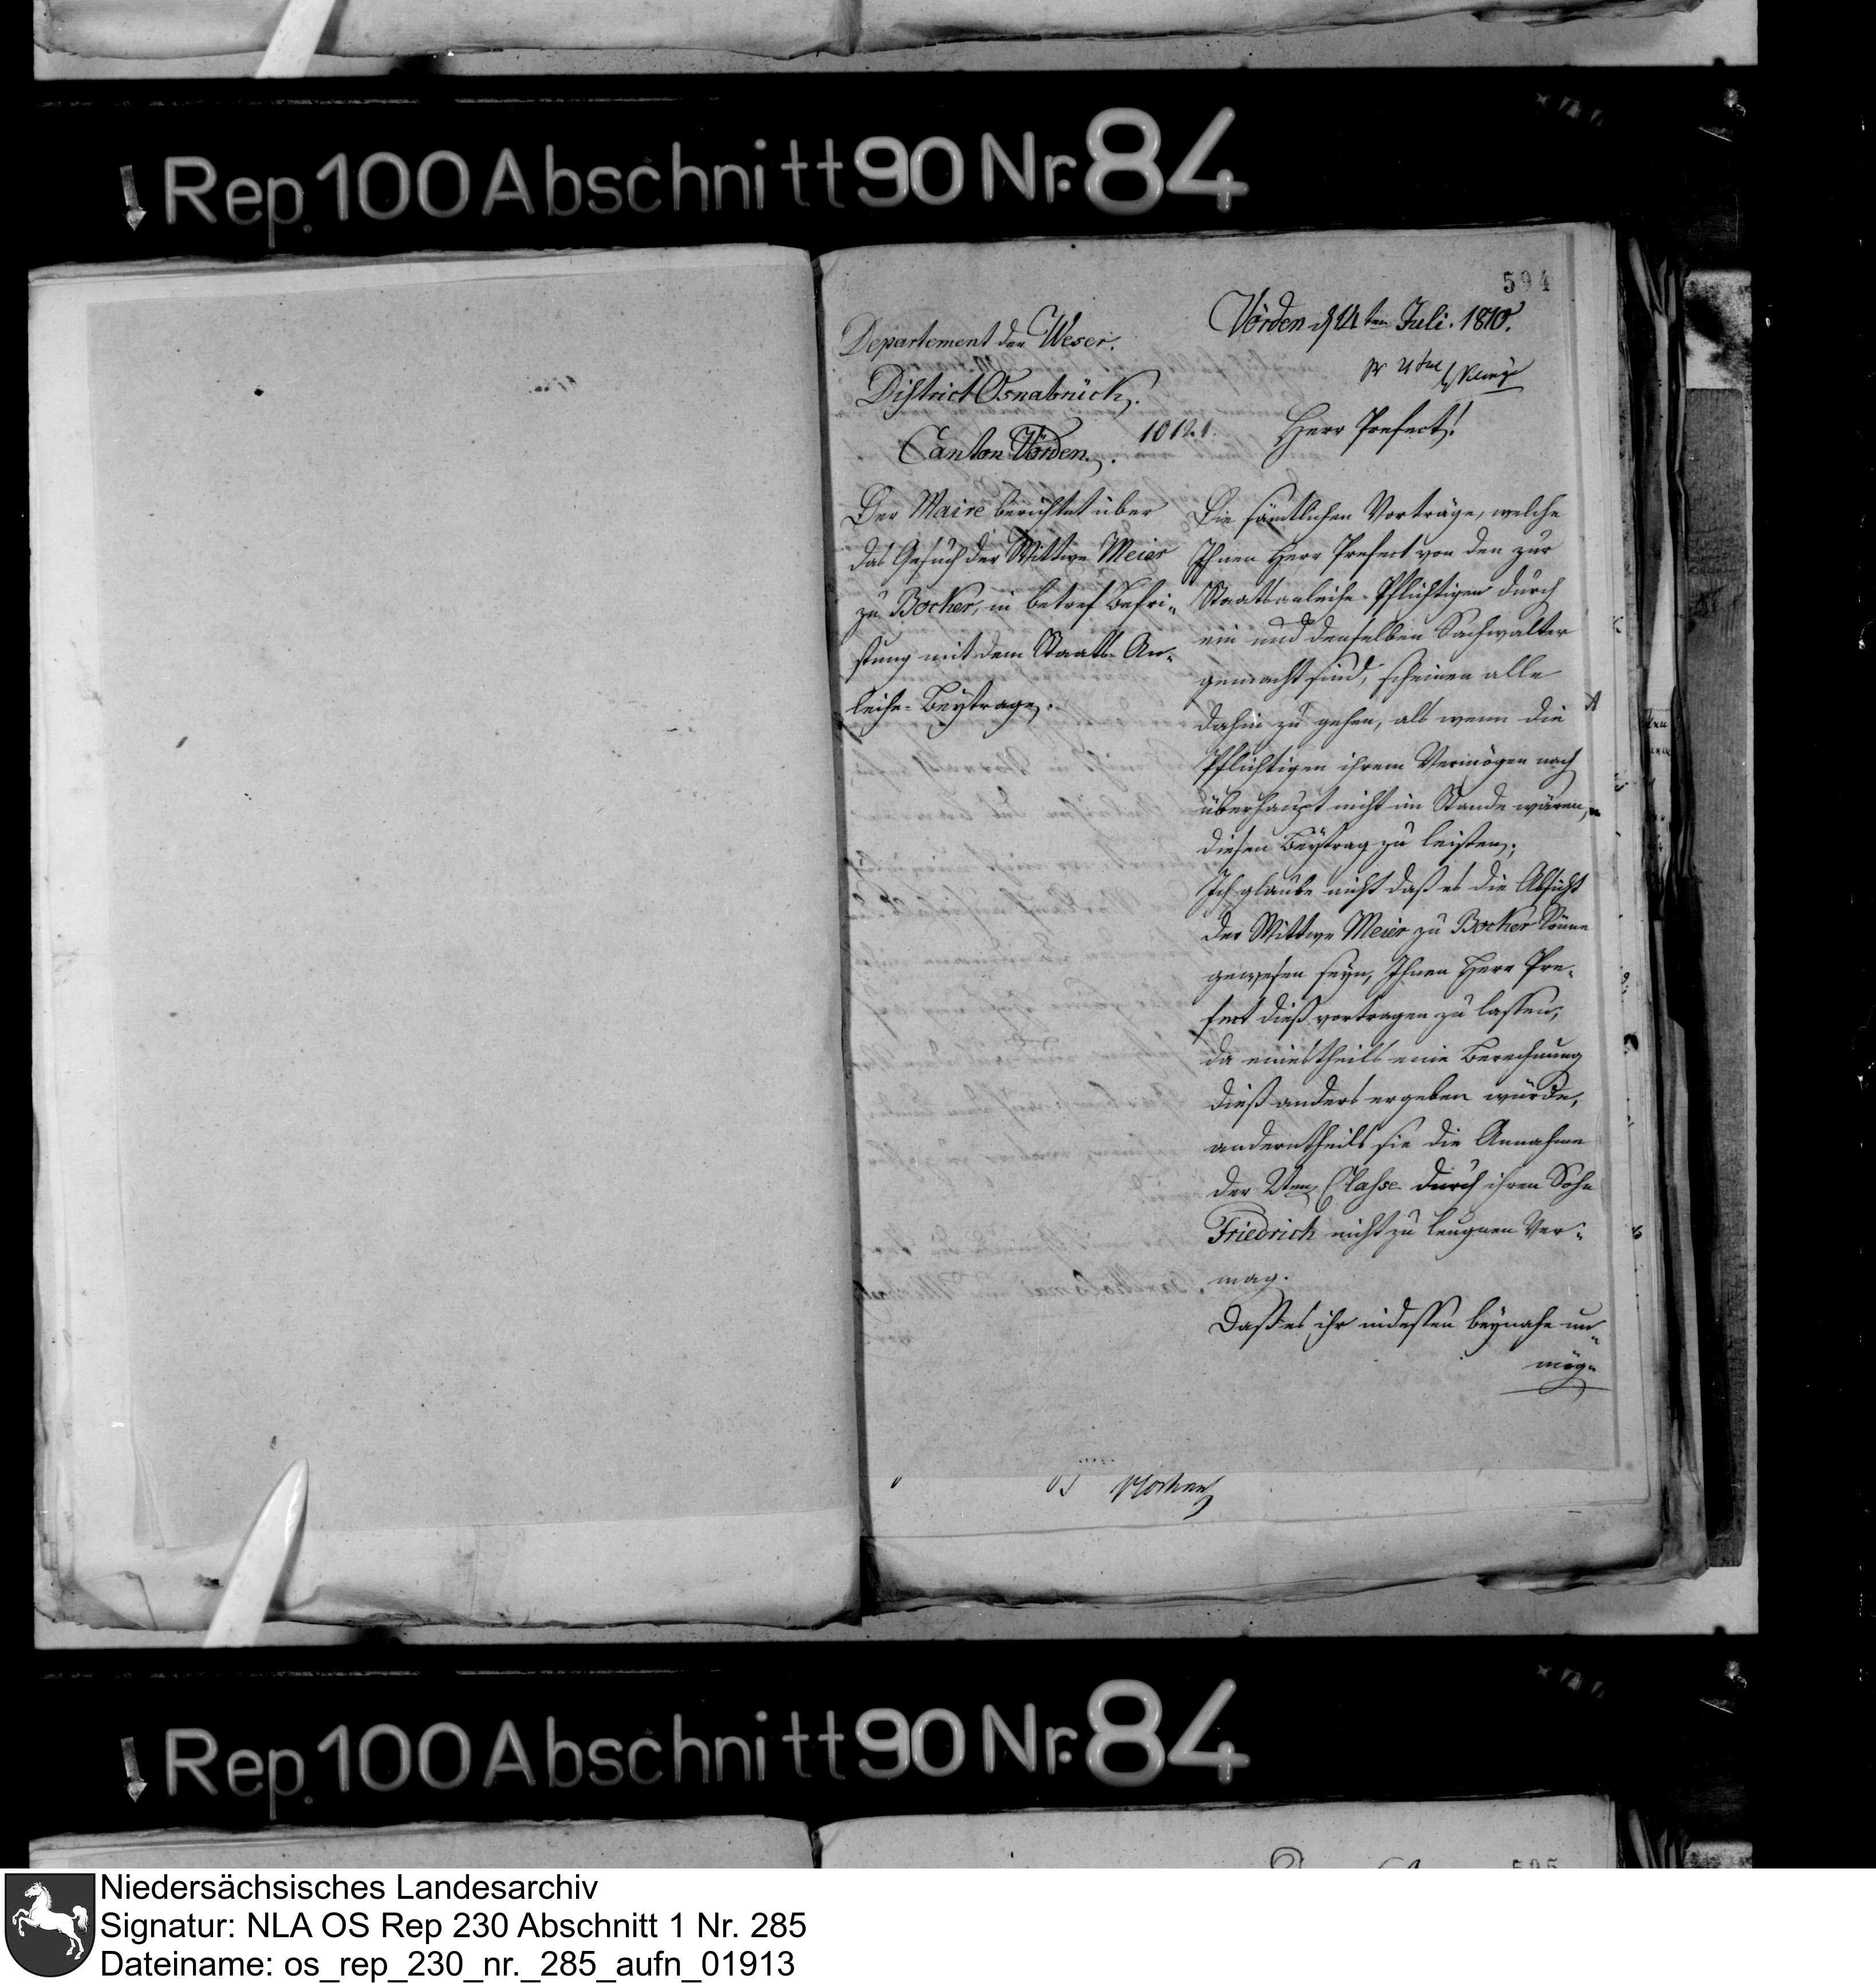 ↓ Rep. 100 Abschnitt 90 Nr. 84
594
Departement der Weser.
District Osnabrück.
Canton Vörden.
Vörden d 14ten Juli. 1810.
1012
Herr Prefect!
Der Maire berichtet über
das Gesuch der Wittwe Meier
zu Bocker, in betref Befri-
stung mit dem Staats-An-
leihe-Beytrage.
Die sämtlichen Vorträge, welche
Ihnen Herr Prefect von den zur
Staatsanleihe-Pflichtigen durch
ein und denselben Sachwalter
gemacht sind, scheinen alle
dahin zu gehen, als wenn die
Pflichtigen ihrem Vermögen nach
überhaupt nicht im Stande wären,
diesen Beytrag zu leisten;
Ich glaube nicht daß es die Absicht
der Wittwe Meier zu Bocker könne
gewesen seyn, Ihnen Herr Pre-
fect dieß vortragen zu lassen,
da einestheils eine Berechnung
dieß anders ergeben würde,
anderntheils sie die Annahme
der Classe durch ihren Sohn
Friedrich nicht zu leugnen ver-
mag.
Daß es ihr indessen beynahe un-
mög-
↓ Rep. 100 Abschnitt 90 Nr. 84
Niedersächsisches Landesarchiv
Signatur: NLA OS Rep 230 Abschnitt 1 Nr. 285
Dateiname: os_rep_230_nr._285_aufn_01913